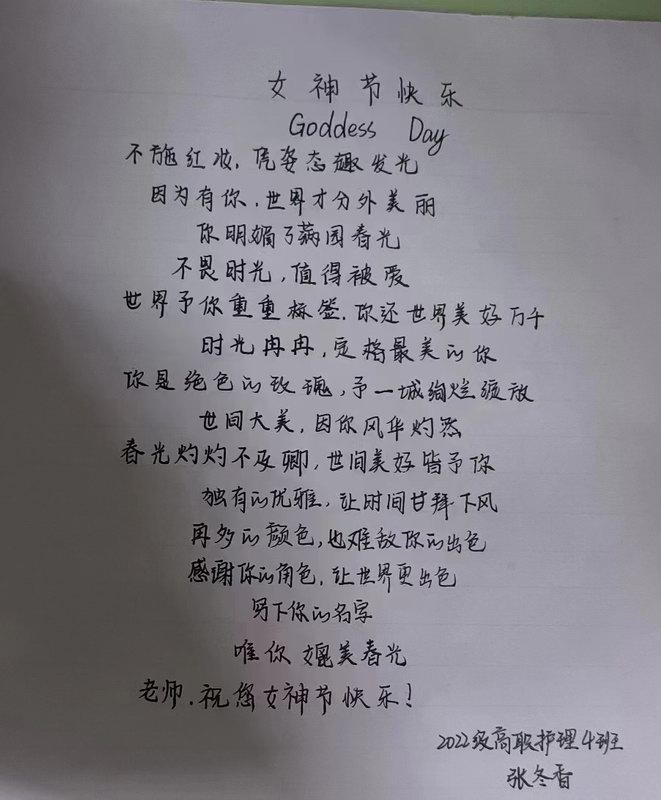 女神节快乐
Goddess Day
不施红妆，凭姿态趣发光
因为有你，世界才分外美丽
你明媚了满园春光
不畏时光，值得被爱
世界予你重重标签，你还世界美好万千
时光冉冉，定格最美的你
你是绝色的玫瑰，予一城绚烂绽放
世间大美，因你风华灼然
春光灼灼不及卿，世间美好皆予你
独有的优雅，让时间甘拜下风
再多的颜色，也难敌你的出色
感谢你的角色，让世界更出色
写下你的名字
唯你媲美春光
老师，祝您女神节快乐！
2022级高职护理4班
张冬香